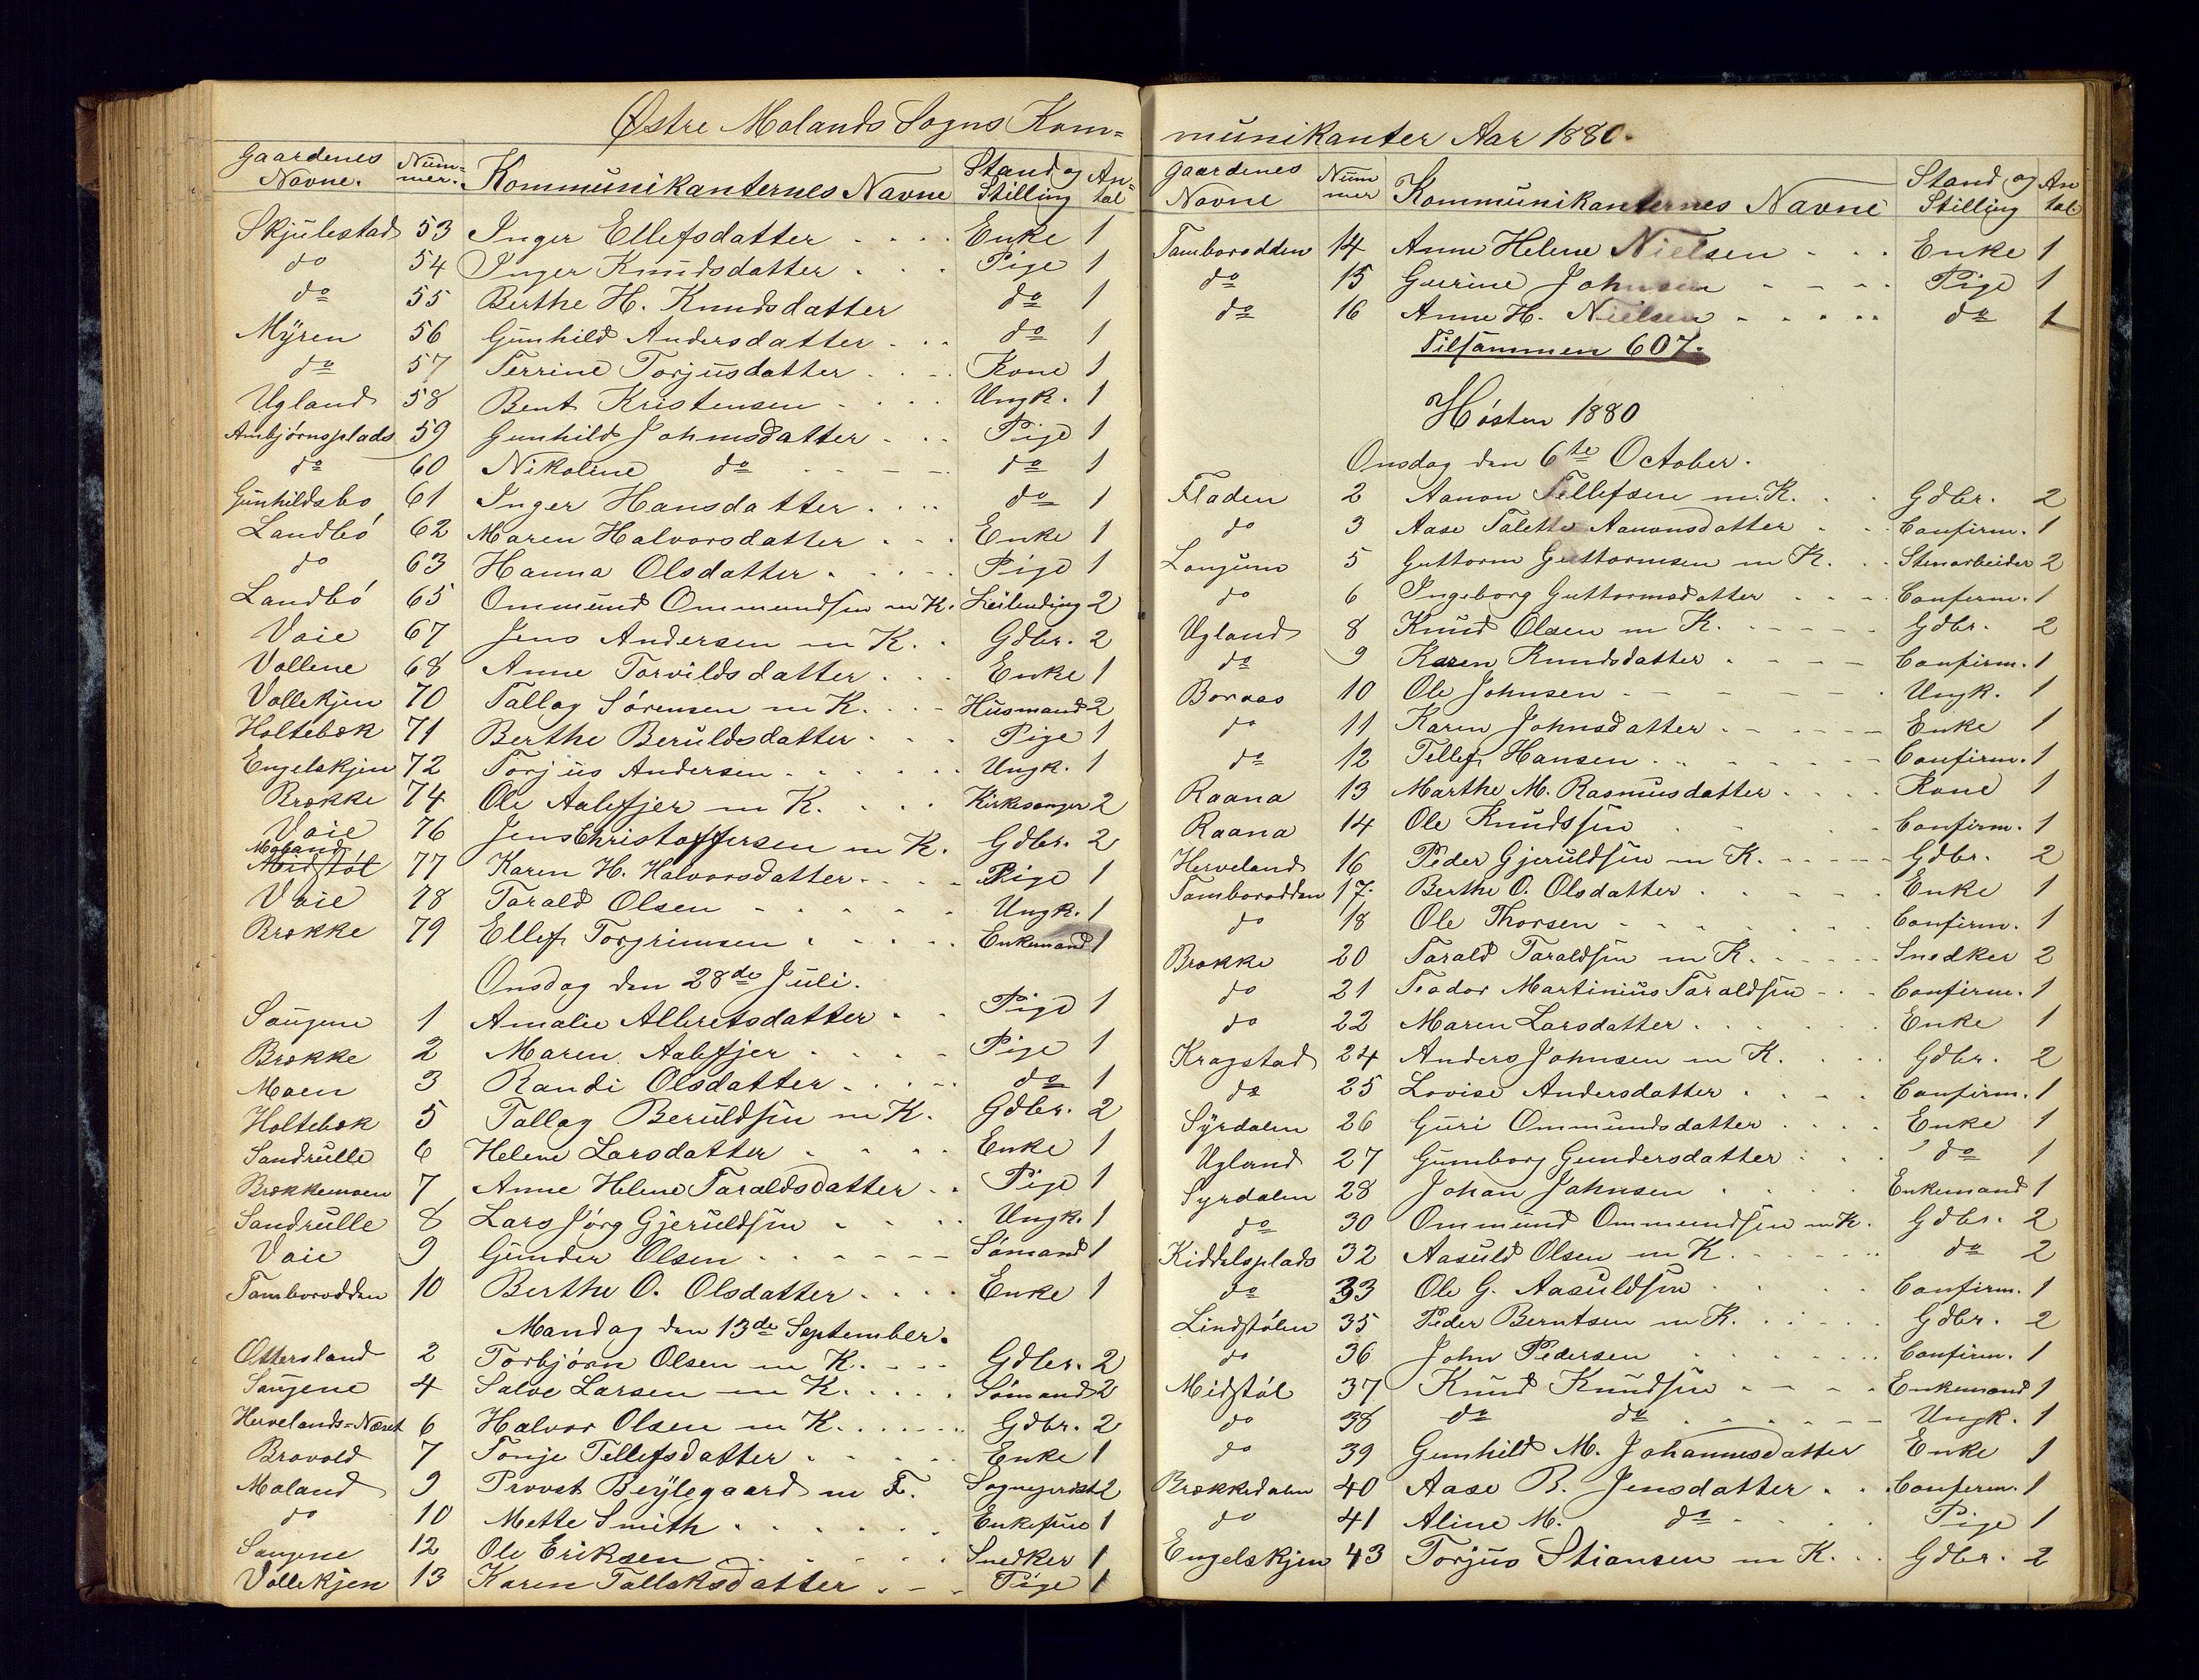 Østre Molands Sogns Kom=
Gaardenes Navne. Num=mer. Kommunikanternes Navne Stand og Stilling An=tal
Skjulestad 53 Inger Ellefsdatter Enke 1
do 54 Inger Knudsdatter Pige 1
do 55 Berthe H. Knudsdatter do 1
Myren 56 Gunhild Andersdatter do 1
do 57 Terrine Torjusdatter Kone 1
Ugland 58 Bent Kristensen Ungk. 1
Ambjørnsplads 59 Gunhild Johnsdatter Pige 1
do 60 Nikoline do do 1
Gunhildsbo 61 Inger Hansdatter do 1
Landbó 62 Maren Halvorsdatter Enke 1
do 63 Hanna Olsdatter Pige 1
Landbó 65 Ommund Ommundsen m K. Leilending 2
Vaie 67 Jens Andersen m K. Gdbr. 2
Vollene 68 Anne Torvildsdatter Enke 1
Vollekjen 70 Tallag Sórensen m K. Husmand 2
Holtebæk 71 Berthe Beruldsdatter Pige 1
Engelskjen 72 Torjus Andersen Ungk. 1
Brække 74 Ole Aalefjer m K. Kirkesanger 2
Vaie 76 Jens Christoffersen m K. Gdbr. 2
Moland
Midstøl 77 Karen H. Halvorsdatter Pige 1
Vaie 78 Tarald Olsen Ungk. 1
Brække 79 Ellef Torgrimsen Enkemand 1
Onsdag den 28de Juli.
Saugene 1 Amalie Albretsdatter Pige 1
Brække 2 Maren Aalefjer Pige 1
Moen 3 Randi Olsdatter do 1
Holtebæk 5 Tallag Beruldsen m K. Gdbr. 2
Sandrulle 6 Helene Larsdatter Enke 1
Brækkemoen 7 Anne Helene Taraldsdatter Pige 1
Sandrulle 8 Lars Jórg Gjeruldsen Ungk. 1
Vaie 9 Gunder Olsen Sómand 1
Tamborodden 10 Berthe O. Olsdatter Enke 1
Mandag den 13de September.
Ottersland 2 Torbjórn Olsen m K. Gdbr. 2
Saugene 4 Salve Larsen m K. Sómand 2
Hervelands=Næset 6 Halvor Olsen m K. Gdbr. 2
Bravold 7 Tonje Tellefsdatter Enke 1
Moland 9 Provst Beylegaard m F. Sogneprest 2
do 10 Mette Smith Enkefrue 1
Saugene 12 Ole Eriksen Snedker 1
Vollekjen 13 Karen Tallaksdatter Pige 1
munikanter Aar 1880.
Gaardenes Navne Nummer Kommunikanternes Navne Stand og Stilling Antal
Tamborodden 14 Anne Helene Nielsen Enke 1
do 15 Guerine Johnsen Pige 1
do 16 Anne H. Nielsen do 1
Tilsammen 607.
Hósten 1880
Onsdag den 6te October.
Fladen 2 Aanon Tellefsen m. K. Gdbr. 2
do 3 Aase Talette Aanonsdatter Confirm. 1
Langum 5 Guttorm Guttormsen m K. Stenarbeider 2
do 6 Ingeborg Guttormsdatter Confirm. 1
Ugland 8 Knud Olsen m K. Gdbr. 2
do 9 Karen Knudsdatter Confirm. 1
Boraas 10 Ole Johnsen Ungk. 1
do 11 Karen Johnsdatter Enke 1
do 12 Tellef Hansen Confirm. 1
Raana 13 Marthe M. Rasmusdatter Kone 1
Raana 14 Ole Knudssen Confirm. 1
Herveland 16 Peder Gjeruldsen m K. Gdbr. 2
Tamborodden 17. Berthe O. Olsdatter Enke 1
do 18 Ole Thorsen Confirm. 1
Brække 20 Tarald Taraldsen m K. Snedker 2
do 21 Teodor Martinius Taraldsen Confirm. 1
do 22 Maren Larsdatter Enke 1
Kragstad 24 Anders Johnsen m K. Gdbr. 2
do 25 Lovise Andersdatter Confirm. 1
Syrdalen 26 Guri Ommundsdatter Enke 1
Ugland 27 Gumborg Gundersdatter do 1
Syrdalen 28 Johan Johnsen Enkemand 1
do 30 Ommund Ommundsen m K. Gdbr. 2
Kiddelsplads 32 Aasuld Olsen m K. do 2
do 33 Ole G. Aasuldsen Confirm. 1
Lindstólen 35 Peder Berntsen m K. Gdbr. 2
do 36 John Pedersen Confirm. 1
Midstól 37 Knud Knudsen Enkemand 1
do 38 do do Ungk. 1
do 39 Gunhild M. Johannesdatter Enke 1
Brækkedalen 40 Aase B. Jensdatter Confirm. 1
do 41 Aline M. do Pige 1
Engelskjen 43 Torjus Stiansen m K. Gdbr. 2